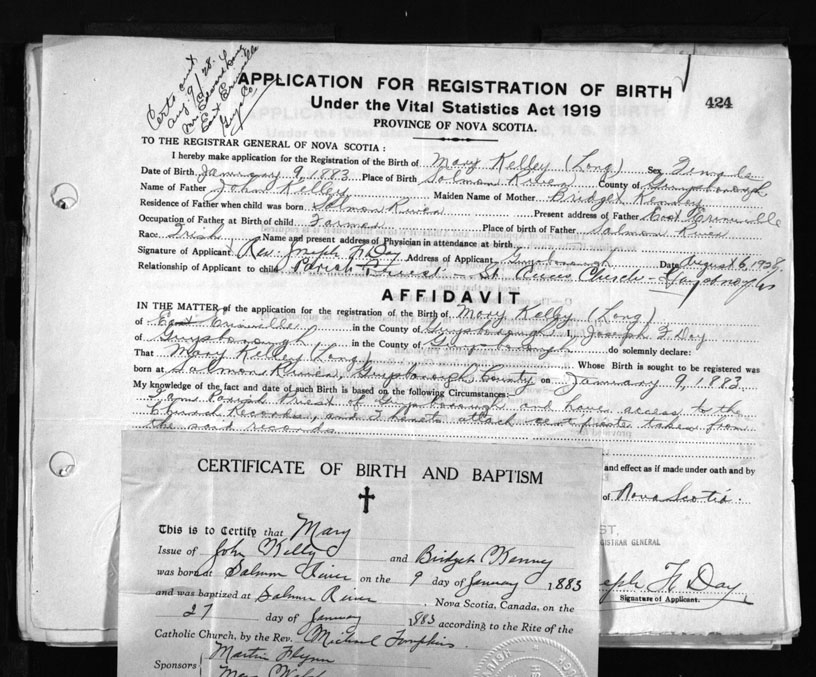 Certs sent
Aug 9/28.
East Erinville
Guys Co.
APPLICATION FOR REGISTRATION OF BIRTH
Under the Vital Statistics Act 1919
PROVINCE OF NOVA SCOTIA.
424
TO THE REGISTRAR GENERAL OF NOVA SCOTIA:
I hereby make application for the Registration of the Birth of Mary Kelley (Long) Sex Female
Date of Birth January 9, 1883 Place of Birth Salmon River County of Guysborough
Name of Father John Kelley Maiden Name of Mother Bridget Kenney
Residence of Father when child was born Salmon River Present address of Father East Erinville
Occupation of Father at Birth of child Farmer Place of birth of Father Salmon River
Race Irish Name and present address of Physician in attendance at birth
Signature of Applicant Rev. Joseph F. Day Address of Applicant Guysborough Date August 6, 1928
Relationship of Applicant to child Parish Priest - St. Church - Guysboro
AFFIDAVIT
IN THE MATTER of the application for the registration of the Birth of Mary Kelley (Long)
of East Erinville in the County of Guysborough I, Joseph F. Day
of Guysborough in the County of Guysborough do solemnly declare:
That Mary Kelley (Long) Whose Birth is sought to be registered was
born at Salmon River, Guysborough County on January 9, 1883
My knowledge of the fact and date of such Birth is based on the following Circumstances:
I am Parish Priest of Guysborough and have access to the
Church Records, and I hereto attach certificate taken from
the said records
and effect as if made under oath and by
of Nova Scotia.
ISTRAR GENERAL
eph F. Day
Signature of Applicant.
CERTIFICATE OF BIRTH AND BAPTISM
This is to Certify that Mary
Issue of John Kelly and Bridget Kenney
was born at Salmon River on the 9 day of January 1883
and was baptized at Salmon River, Nova Scotia, Canada, on the
27 day of January 1883 according to the Rite of the
Catholic Church, by the Rev. Michael Tompkins.
Sponsors Martin Flynn